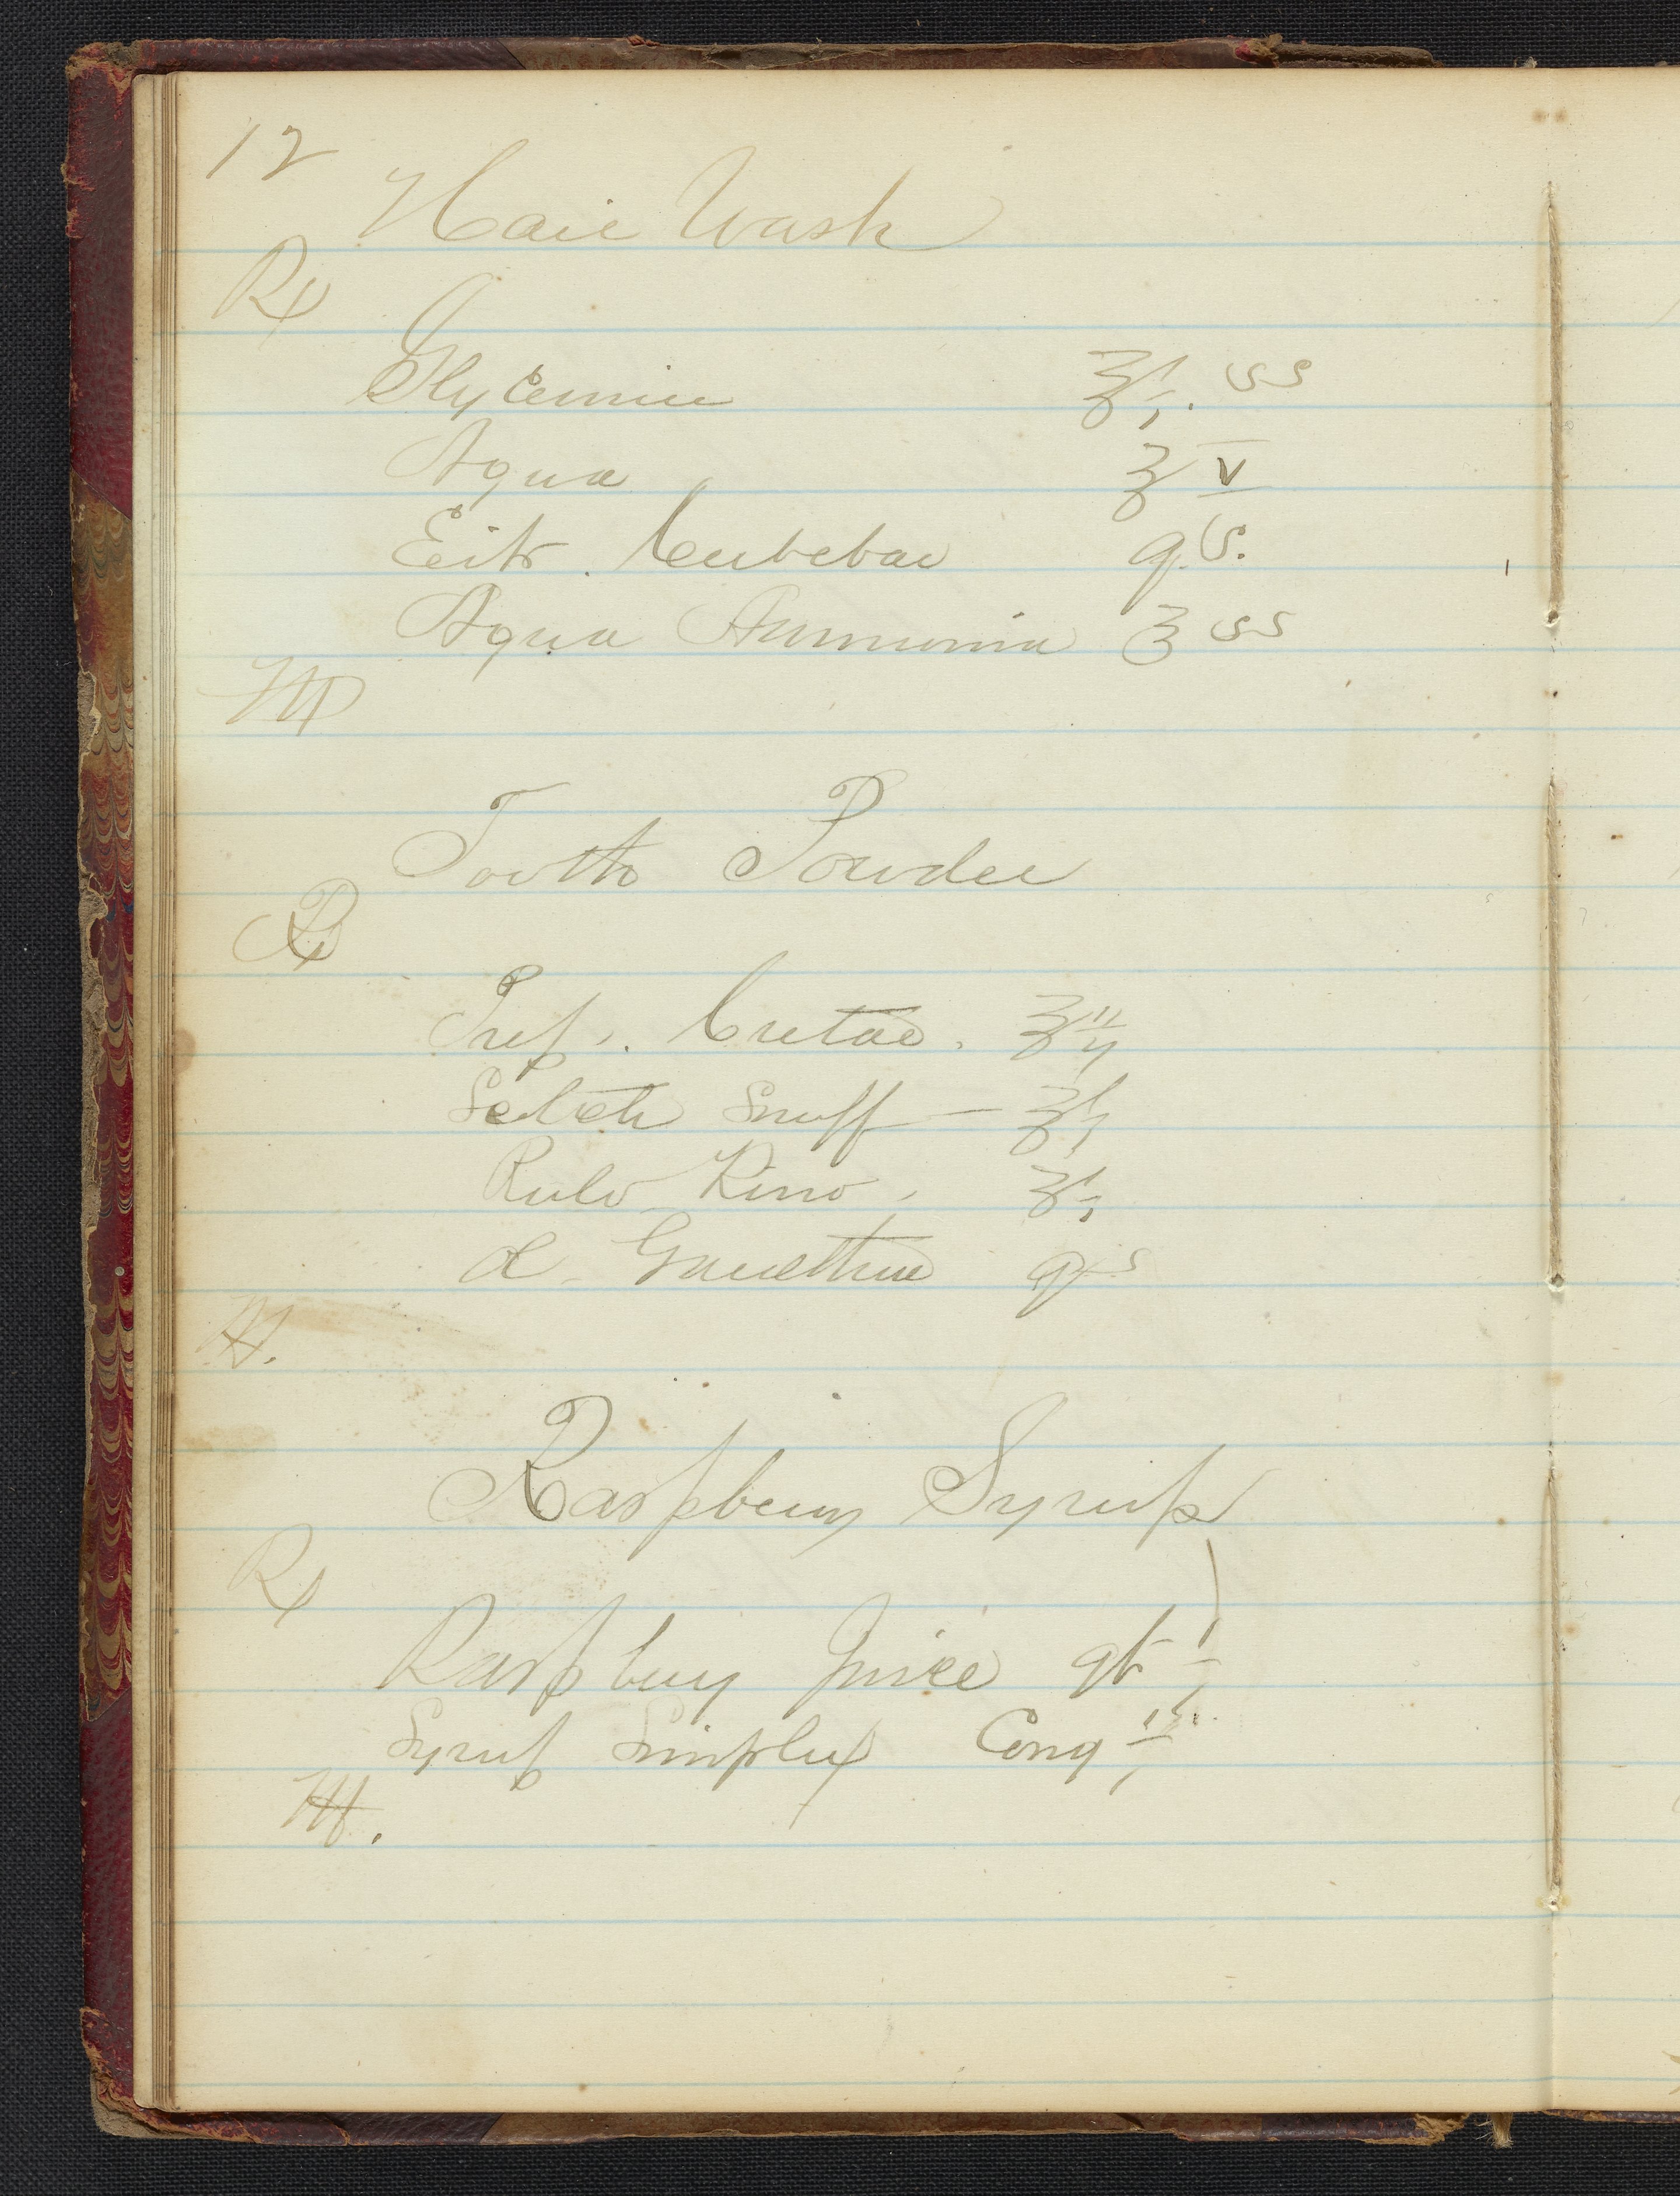 12
Hair Wash
Rx
Glycerrine ℥i. ss
Aqua ℥ V
Extr. Cubebae q.s.
Aqua Ammonia ℥ ss
M
Tooth Powder
Rx
Prep. Cretae. ℥ii
Scotch Snuff — ℥i
Pulv Kino, ℥i
Ol Gaultheria qs
M.
Raspberry Syrup
Rx
Raspbery Juice qt i
Syrup Simplex Cong
M.